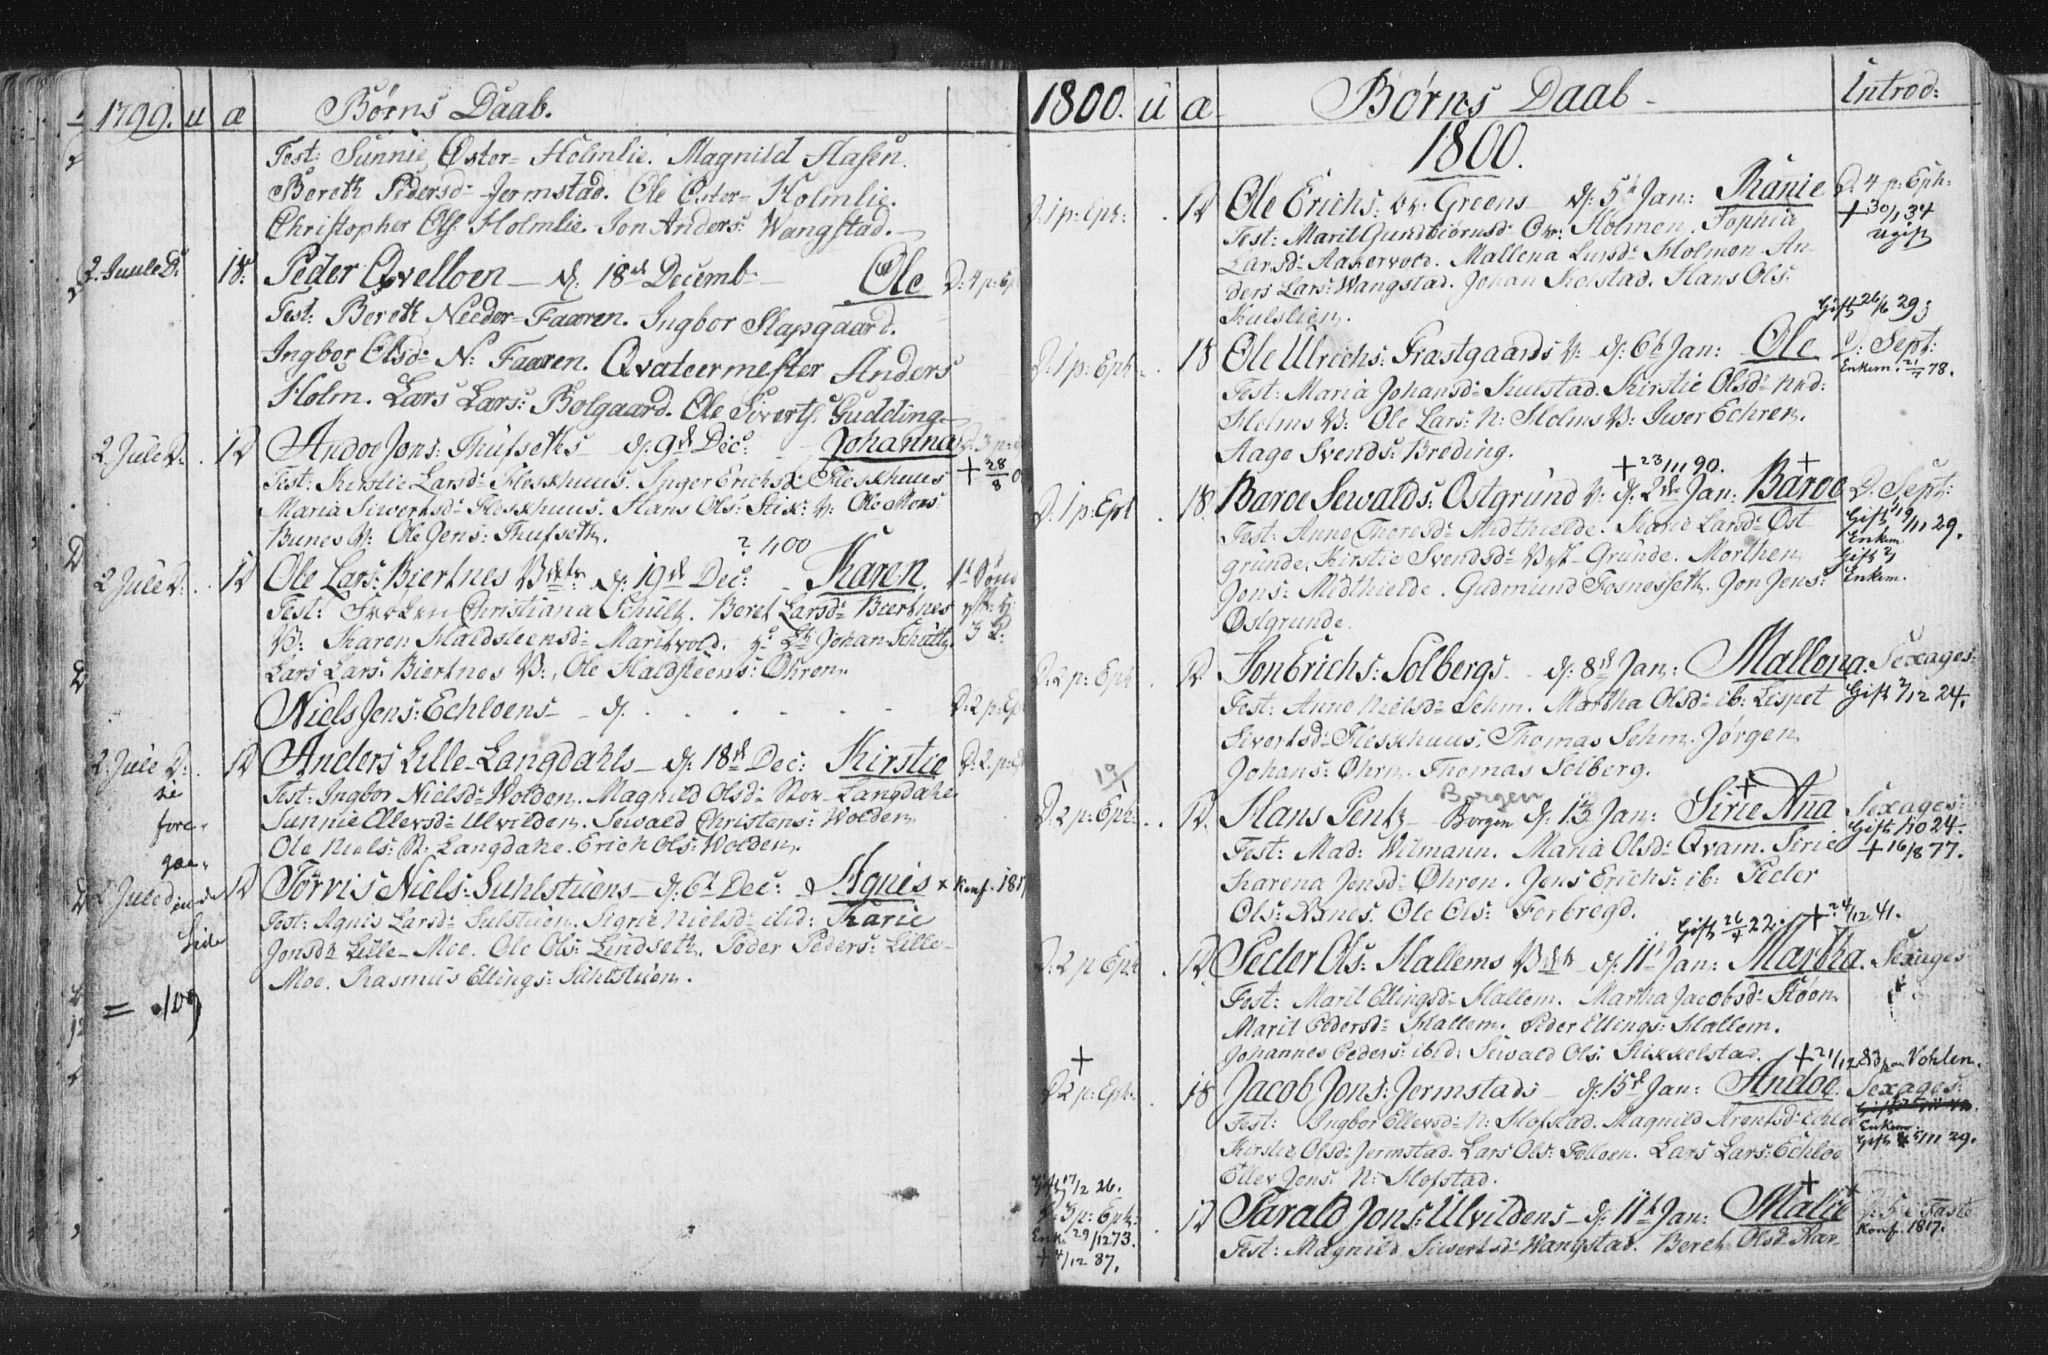 1799. u æ Børns Daab.
Test: Sunnie Øster-Holmlie. Magnild Hasen.
Bereth Pedersd: Jermstad. Ole Øster-Holmlie.
Christopher Ols: Holmlie. Jon Anders: Wangstad.
2. Juule D: 18. Peder Qvelloen d: 18de Decemb Ole D: 4 p: Ep
Test: Bereth Neder-Faaren. Ingbor Slapgaard.
Ingbor Olsd: N: Faaren. Qvateermester Anders
Holm. Lars Lars: Bolgaard. Ole Siverts: Gudding.
2 Jule D: 12 Andoe Jons: Thusseths d: 9de Dec: Johanna D. 3 p:
Test: Kirstie Larsd: Fleskhuus. Inger Erichsd: Fleskhuus + 28/8 0
Maria Siwertsd: Fleskhuus. Hans Ols: Stix: V: Ole Mons:
Bunes V: Ole Jens: Thusseth.
? 400
2 Jule D: 12 Ole Lars: Biertnes d: 19de Dec: Karen.
Test: Frøken Christiana Schultz. Beret Larsd: Biertnes
V: Karen Haldsteensd: Maritvold. Lt: Johan Schultz.
Lars Lars: Biertnes V:, Ole Haldsteens: Øhren.
Niels Jens: Echloens d. . . . . . D: 2 p: Ep
2. Jule D: 12 Anders Lille-Langdahls d: 18de Dec: Kirstie D: 2. p: Ep
Test: Ingbor Nielsd: Wolden. Magnild Olsd: Stor-Langdahl
Sunnie Ellevsd: Ulvilden. Sewald Christens: Wolden
Ole Niels: St: Langdahl. Erich Ols: Wolden.
se
fore-
gaa-
ende
Side
2 Jule D 12 Torris Niels: Suhlstuens d: 6t Dec: Agnis x Konf. 1817
Test: Agnis Larsd: Sulstuen. Signe Nielsd: ibid: Karie
Jonsd: Lille-Moe. Ole Ols: Lindseth. Peder Peders: Lille-
Moe. Rasmus Ellings: Suhlstuen.
= 109
1800. u æ Børns Daab Introd:
1800.
D: 1 p: Eph: 12 Ole Erichs: Greens d: 5t Jan: Ranie D. 4 p: Eph:
+ 30/1 34
ugift
Test: Marit Gundbiørnsd: Holmen. Sophia
Larsd: Aakervold. Mallena Larsd: Holmen. An-
ders Lars: Wangstad. Johan Kolstad. Hans Ols:
Kulslien.
Gift 26/6 29;
D. 1 p: Eph 18 Ole Ulrichs: Trastgaards V: d: 6t Jan: Ole D: Sept:
Enkem: 21/7 78.
Test: Maria Johansd: Kulstad. Kirstie Olsd: Ned:
Holms V: Ole Lars: N: Holms V: Iwer Echren.
Aage Svends: Breding.
+ 23/11 90. +
D. 1 p: Eph 18. Baroe Sewalds: Ostgrund V: d: 2de Jan: Baroe D. Sept:
Gift 19/11 29.
Enkem
Gift
Enkem.
Test: Anne Thoresd: Midthielde. Karie Larsd: Øst
grunde, Kirstie Svendsd: Vest-Grunde. Morthen
Jons: Midthielde. Gudmund Fosnesseth. Jon Jens:
Østgrunde.
D: 2 p: Eph 12 Jon Erichs: Solbergs d: 8de Jan: Mallena. Sexages:
Gift 2/12 24.
Test: Anne Nielsd: Sehm. Martha Olsd: ib: Lispet
Sivertsd: Fleskhuus. Thomas Sehm. Jørgen
Johans: Øhrn. Thomas Solberg.
19/1
Borgen
D. 2 p: Eph: 12. Hans Sentz Borgen d: 13 Jan: Sirie Ana Sexages:
Gift 1/10 24.
+ 16/8 77.
Test: Mad: Wilmann. Maria Olsd: Qvam. Sirie
Karena Jensd: Øhren. Jens Erichs: ib: Peder
Ols: Rynes. Ole Ols: Forbregd.
Gift 26/4 22. + 24/12 41.
D: 2 p Eph 12 Peder Ols: Hallems d: 11t Jan: Martha. Sexages
Test: Marit Ellingsd: Hallem. Martha Jacobsd: Støen
Marit Pedersd: Hallem. Peder Ellings: Hallem.
Johannes Peders: ibid: Sewald Ols: Stikkelstad.
+ 21/12 83 Vohlen.
+
D. 2 p: Eph: 18 Jacob Jons: Jermstads d: 15de Jan: Andoe. Sexages:
Enkem
Gift 11 29.
Test: Ingbor Ellevsd: N: Hofstad. Magnild Arentsd: Echloe
Kirstie Olsd: Jermstad. Lars Ols: Folloen. Lars Lars: Echloe
Ellev Jens: N: Hofstad.
Gift 17/2 26.
D. 3 p: Eph:
Enk. 29/12 73.
+ 4/12 87.
12 Tarald Jons: Ulvildens d: 11t Jan: Malie
Konf. 1817.
Test: Magnild Siwertsd: Wangstad. Bereth Olsd: